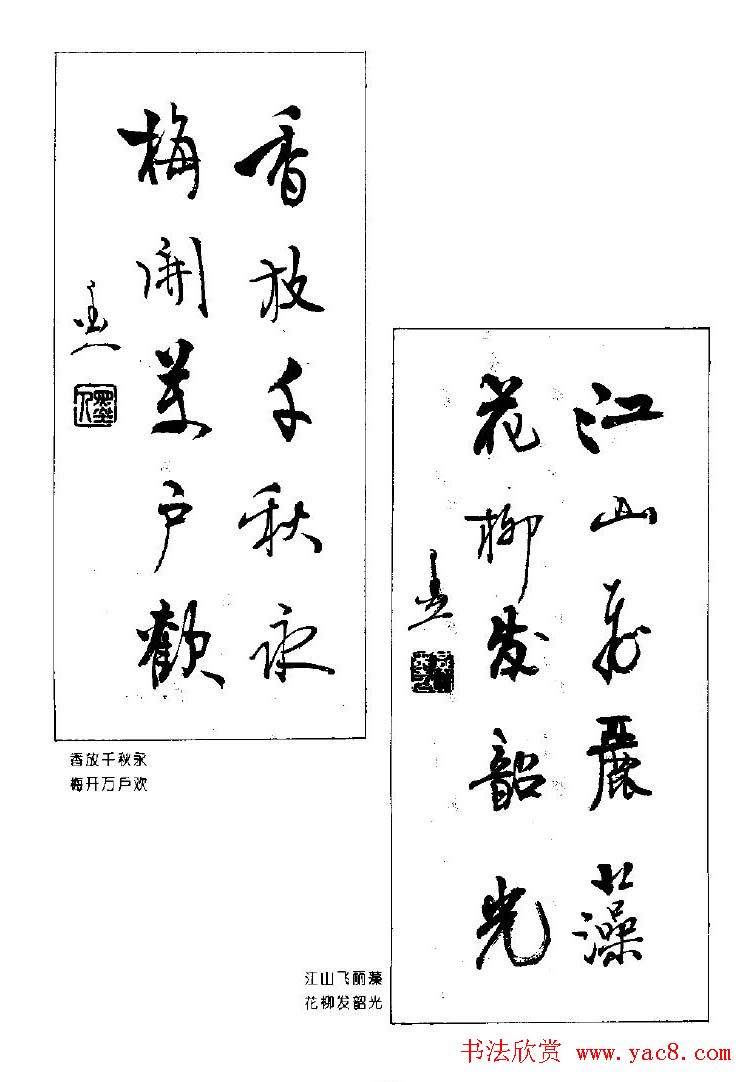 香放千秋永
梅開萬户歡
香放千秋永
梅开万户欢
江山飛麗藻
花柳发韶光
江山飞丽藻
花柳发韶光
书法欣赏 www.yac8.com